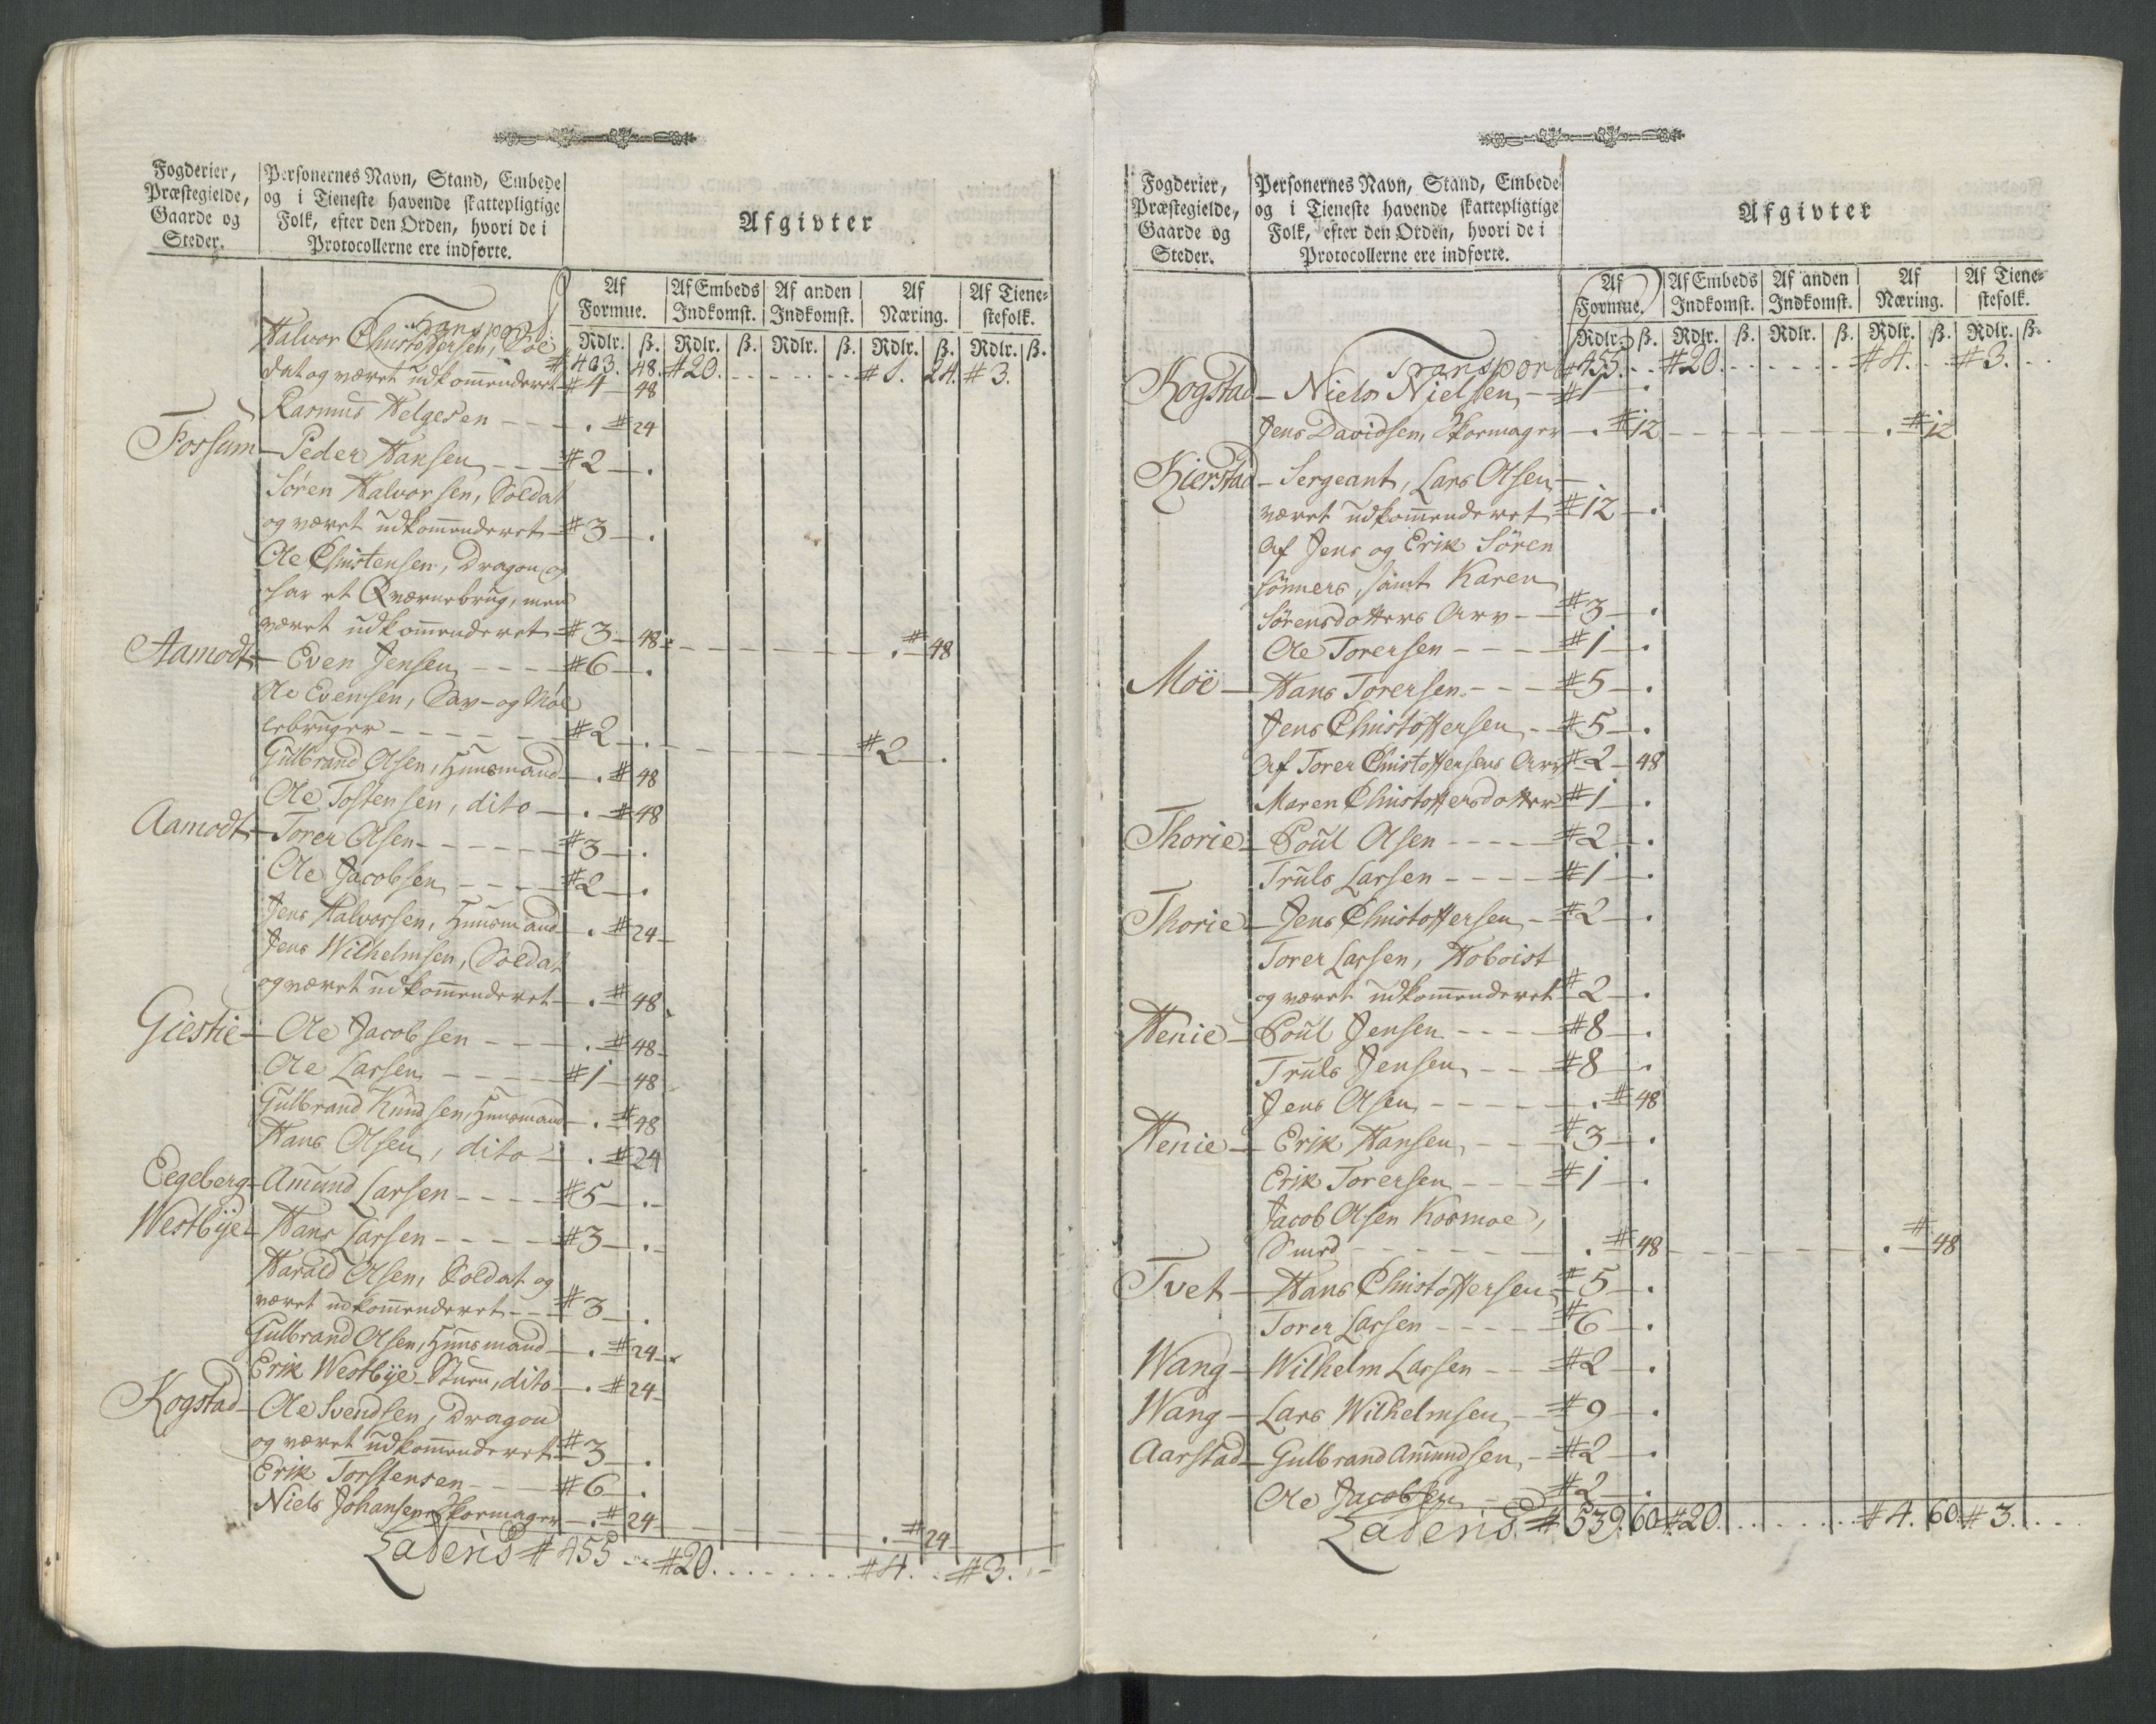 Fogderier,
Præstegielde,
Gaarde og
Steder.
Personernes Navn, Stand, Embede
og i Tieneste havende skattepligtige
Folk, efter den Orden, hvori de i
Protocollerne ere indførte.
Afgivter
Af Formue. Af Embeds Indkomst. Af anden Indkomst. Af Næring. Af Tienestefolk.
Rdlr. ß. Rdlr. ß. Rdlr. ß. Rdlr. ß. Rdlr. ß.
Transport # 403. 48. #20. . . . . . . #1. 24. #3.
Halvor Christophersen, Sol
dat og været udkom̄enderet #4 48
Rasmus Helgesen - - - . #24
Fossum - Peder Hansen - - - #2 - .
Søren Halvorsen, Soldat
og været udkom̄enderet #3 - .
Ole Christensen, Dragon og
har et Qværnebrug, men
været udkom̄enderet #3 - 48 - - - - - . #48
Aamodt - Even Jensen - - - - #6 - .
Ole Evensen, Sav- og Møl
lebruger - - - - - #2 - . - - - - #2 - .
Gulbrand Olsen, Huusmand - . #48
Ole Tostensen, dito - . #48
Aamodt - Torer Olsen - - - - - #3 - .
Ole Jacobsen - - - - #2 - .
Jens Halvorsen, Huusmand - . #24
Jens Wilhelmsen, Soldat
og været udkom̄enderet - . #48
Giestie - Ole Jacobsen - - - . #48
Ole Larsen - - - - #1 - 48
Gulbrand Knudsen, Huusmand - . #48
Hans Olsen, dito - . #24
Eegeberg - Amund Larsen - - - - #5 - .
Westbÿe - Hans Larsen - - - - #3 - .
Harald Olsen, Soldat og
været udkom̄enderet - - #3 - .
Gulbrand Olsen, Huusmand - . #24
Erik Westbÿe-Stuen, dito - . #24
Kogstad - Ole Svendsen, Dragon
og været udkom̄enderet #3 - .
Erik Torstensen - - - #6 - .
Niels Johansen Skormager - . #24 - - - - . #24
Lateris # 455 - - #20. . . . . . . #4. . #3. . -
Fogderier,
Præstegielde,
Gaarde og
Steder.
Personernes Navn, Stand, Embede
og i Tieneste havende skattepligtige
Folk, efter den Orden, hvori de i
Protocollerne ere indførte.
Afgivter
Af Formue. Af Embeds Indkomst. Af anden Indkomst. Af Næring. Af Tienestefolk.
Rdlr. ß. Rdlr. ß. Rdlr. ß. Rdlr. ß. Rdlr. ß.
Transport #455. . . #20. . . . . . . #4. . #3. . .
Kogstad - Niels Nielsen - #1 - .
Jens Davidsen, Skormager - . #12 - - - - - . #12
Kierstad - Sergeant, Lars Olsen -
været udkom̄enderet #12 - .
Af Jens og Erik Søren
sønners, samt Karen
Sørensdotters Arv - - #3 - .
Ole Torersen - - - - #1 - .
Moë - Hans Torersen - - - #5 - .
Jens Christoffersen - #5 - .
Af Torer Christoffersens Arv #2 - 48
Maren Christoffersdotter #1 - .
Thorie - Poul Olsen - - - - #2 - .
Truls Larsen - - - - #1 - .
Thorie - Jens Christoffersen - #2 - .
Torer Larsen, Hoboist
og været udkom̄enderet #2 - .
Henie - Poul Jensen - - - - #8 - .
Truls Jensen - - #8 - .
Jens Olsen - - - - . #48
Henie - Erik Hansen - - - #3 - .
Erik Torersen - - - #1 - .
Jacob Olsen Kosmoe,
Smed - - - - . #48 - - - - . #48
Tvet - Hans Christoffersen #5 - .
Torer Larsen - - - - #6 - .
Wang - Wilhelm Larsen - - #2 - .
Wang - Lars Wilhelmsen - #9 - .
Aarstad - Gulbrand Amundsen - #2 - .
Ole Jacobsen - #2 - .
Lateris. # 539. 60 #20. . . . . . . #4. 60. #3. . . .